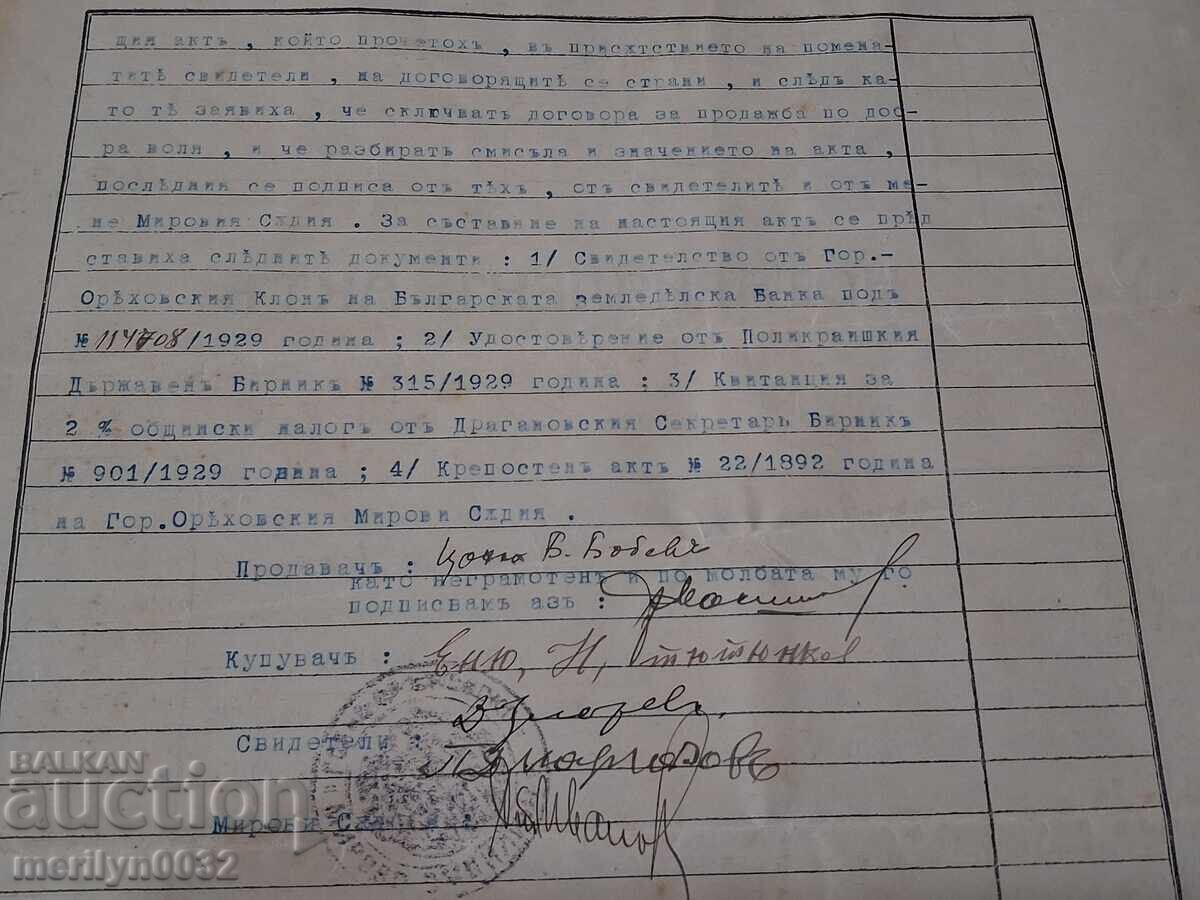 щия актъ , който прочетохъ , въ присѫтствието на помена-
титѣ свидетели , на договорящитѣ се страни , и слѣдъ ка-
то тѣ заявиха , че сключватъ договора за продажба по доб-
ра воля , и че разбиратъ смисъла и значението на акта ,
послѣдния се подписа отъ тѣхъ , отъ свидетелитѣ и отъ ме-
не Мировия Сѫдия . За съставяне на настоящия актъ се прѣд
ставиха слѣднитѣ документи : 1/ Свидетелство отъ Гор.-
Орѣховския Клонъ на Българската земледѣлска Банка подъ
№ 114708/1929 година ; 2/ Удостовѣрение отъ Поликраишкия
Държавенъ Бирникъ № 315/1929 година : 3/ Квитанция за
2 % общински налогъ отъ Драгановския Секретарь Бирникъ
№ 901/1929 година ; 4/ Крепостенъ актъ № 22/1892 година
на Гор.Орѣховския Мирови Сѫдия .
Продавачъ : Цоню Б. Бобевъ
като неграмотенъ и по молбата му го
подписвамъ азъ :
Купувачъ : Еню, Н, тютюнков
Свидетели :
Мирови Сѫдия :
BALKAN
auction
merilyn0032